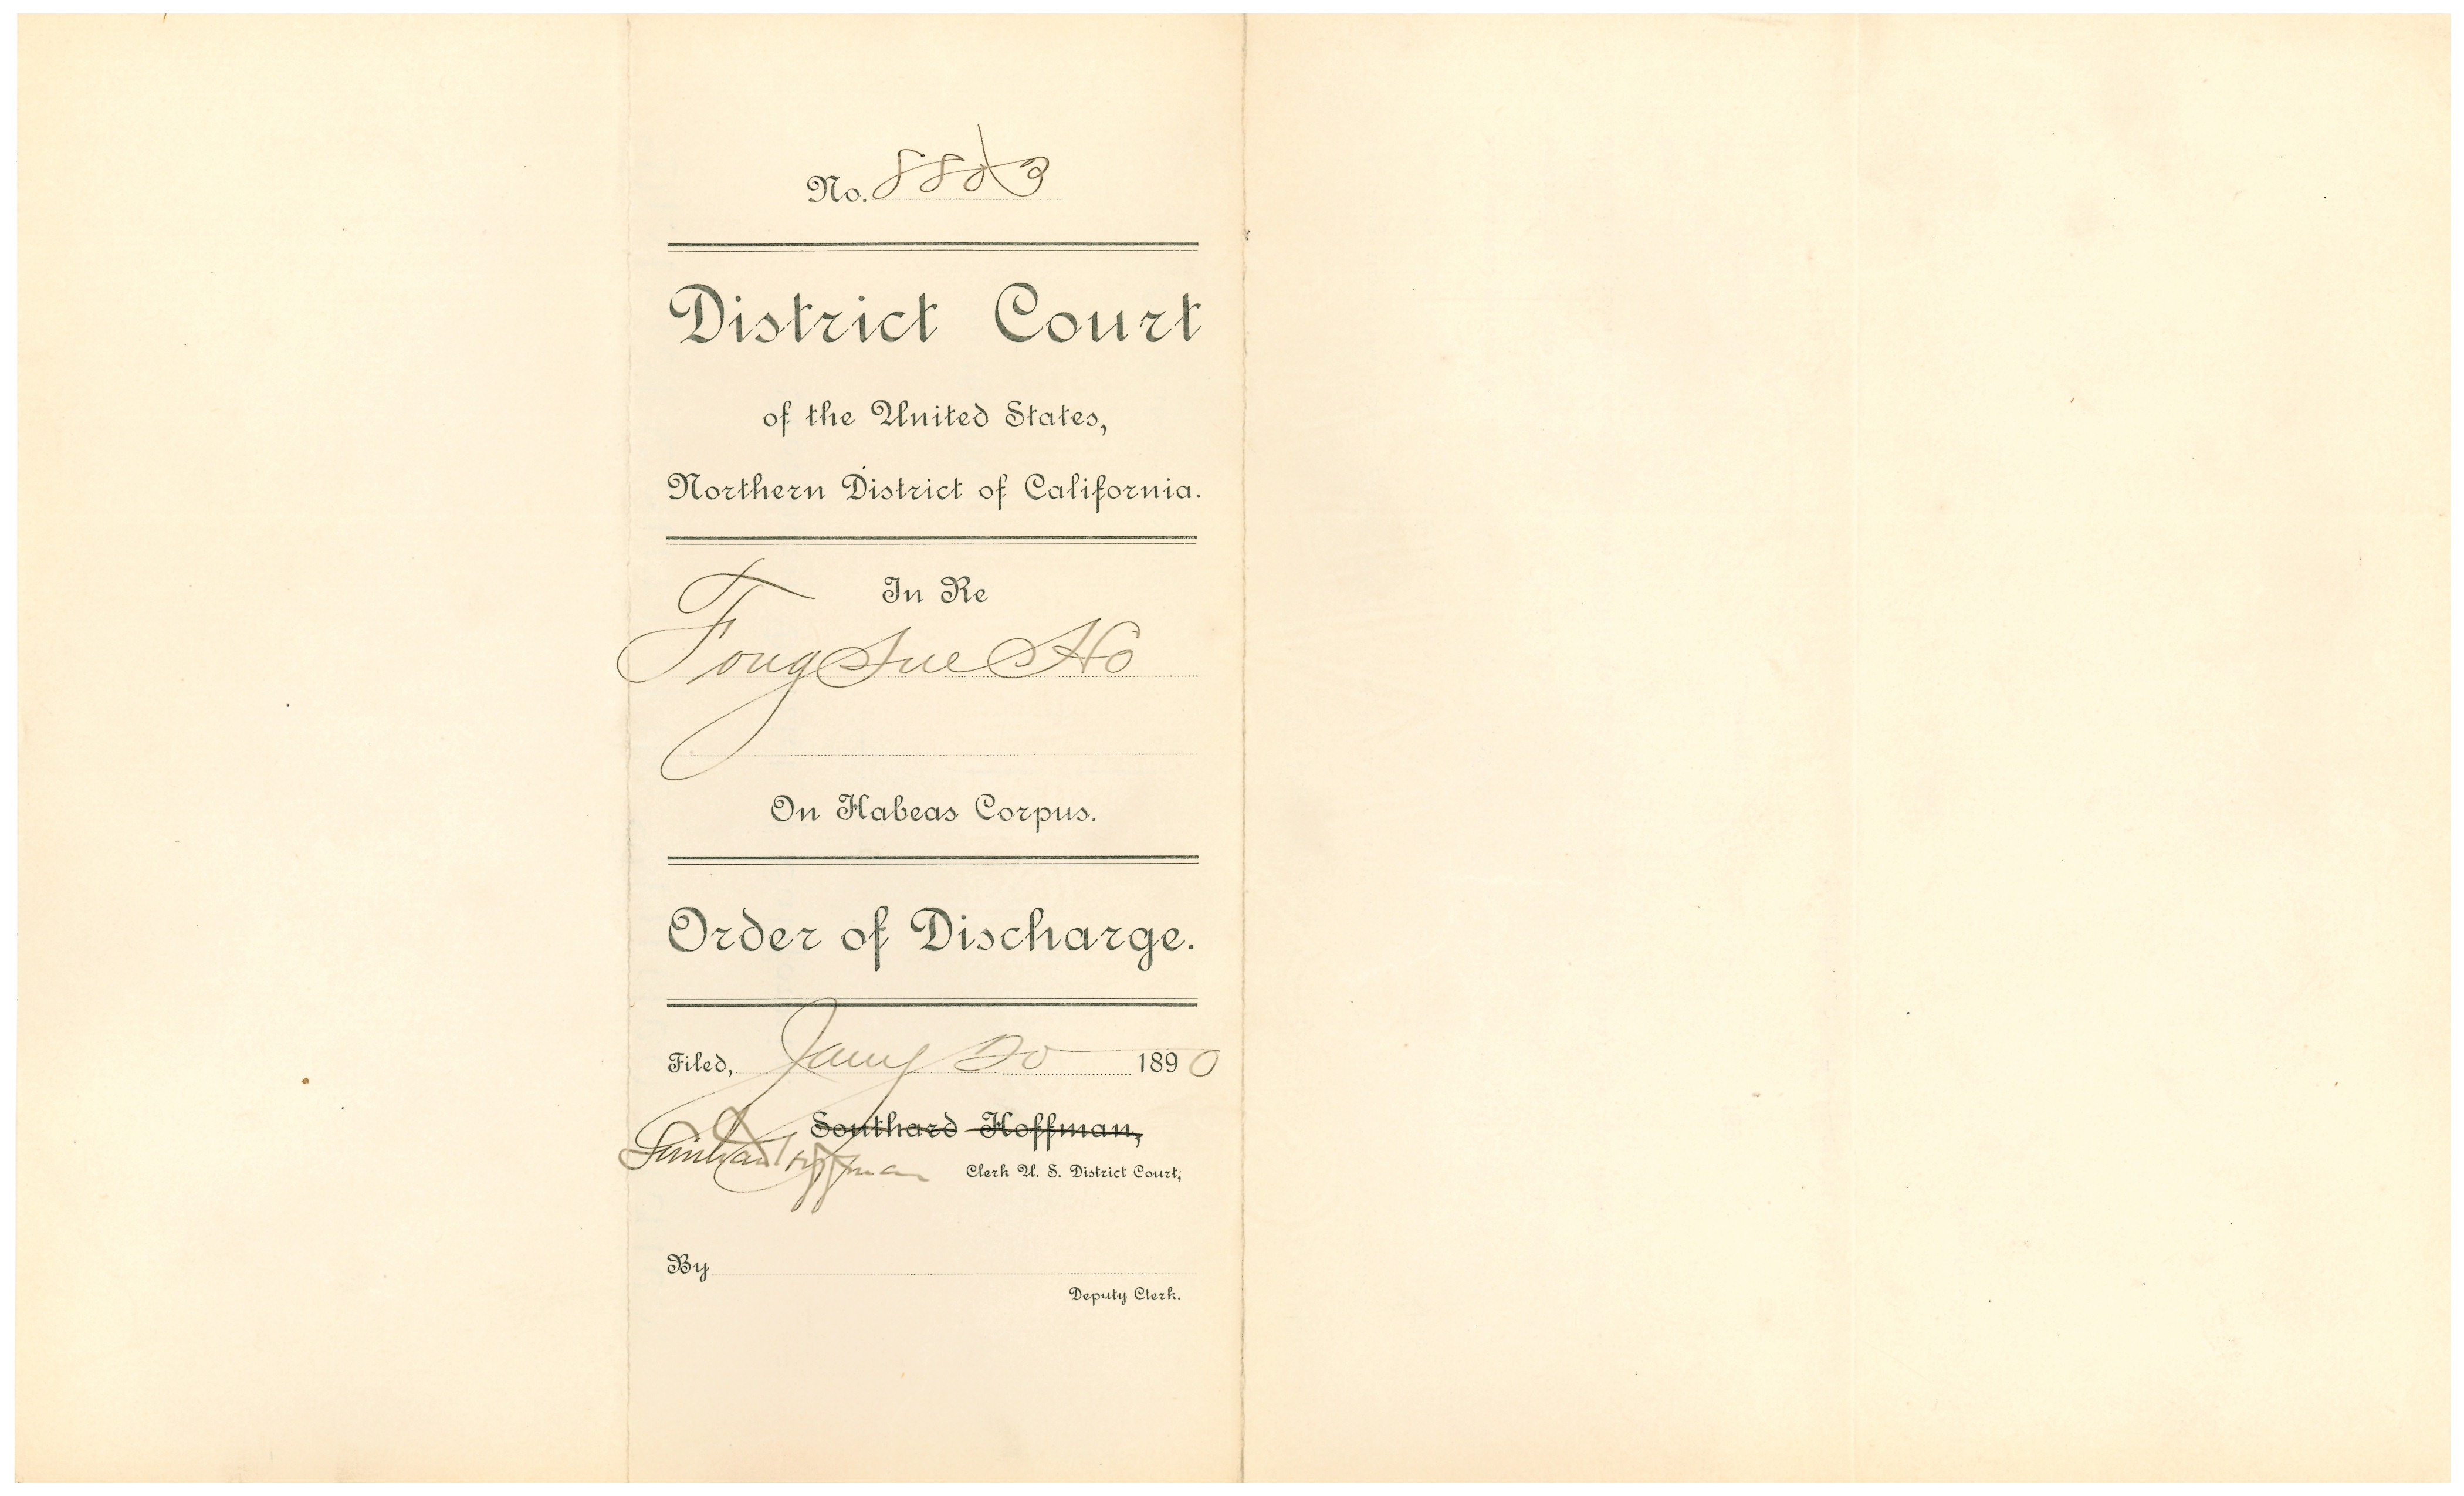 No. 8883
District Court
of the United States,
Northern District of California.
In Re
Fong Sue Ho
On Habeas Corpus.
Order of Discharge.
Filed, Jany 20 1890
Southard Hoffman,
Southard Hoffman Clerk U. S. District Court,
By
Deputy Clerk.